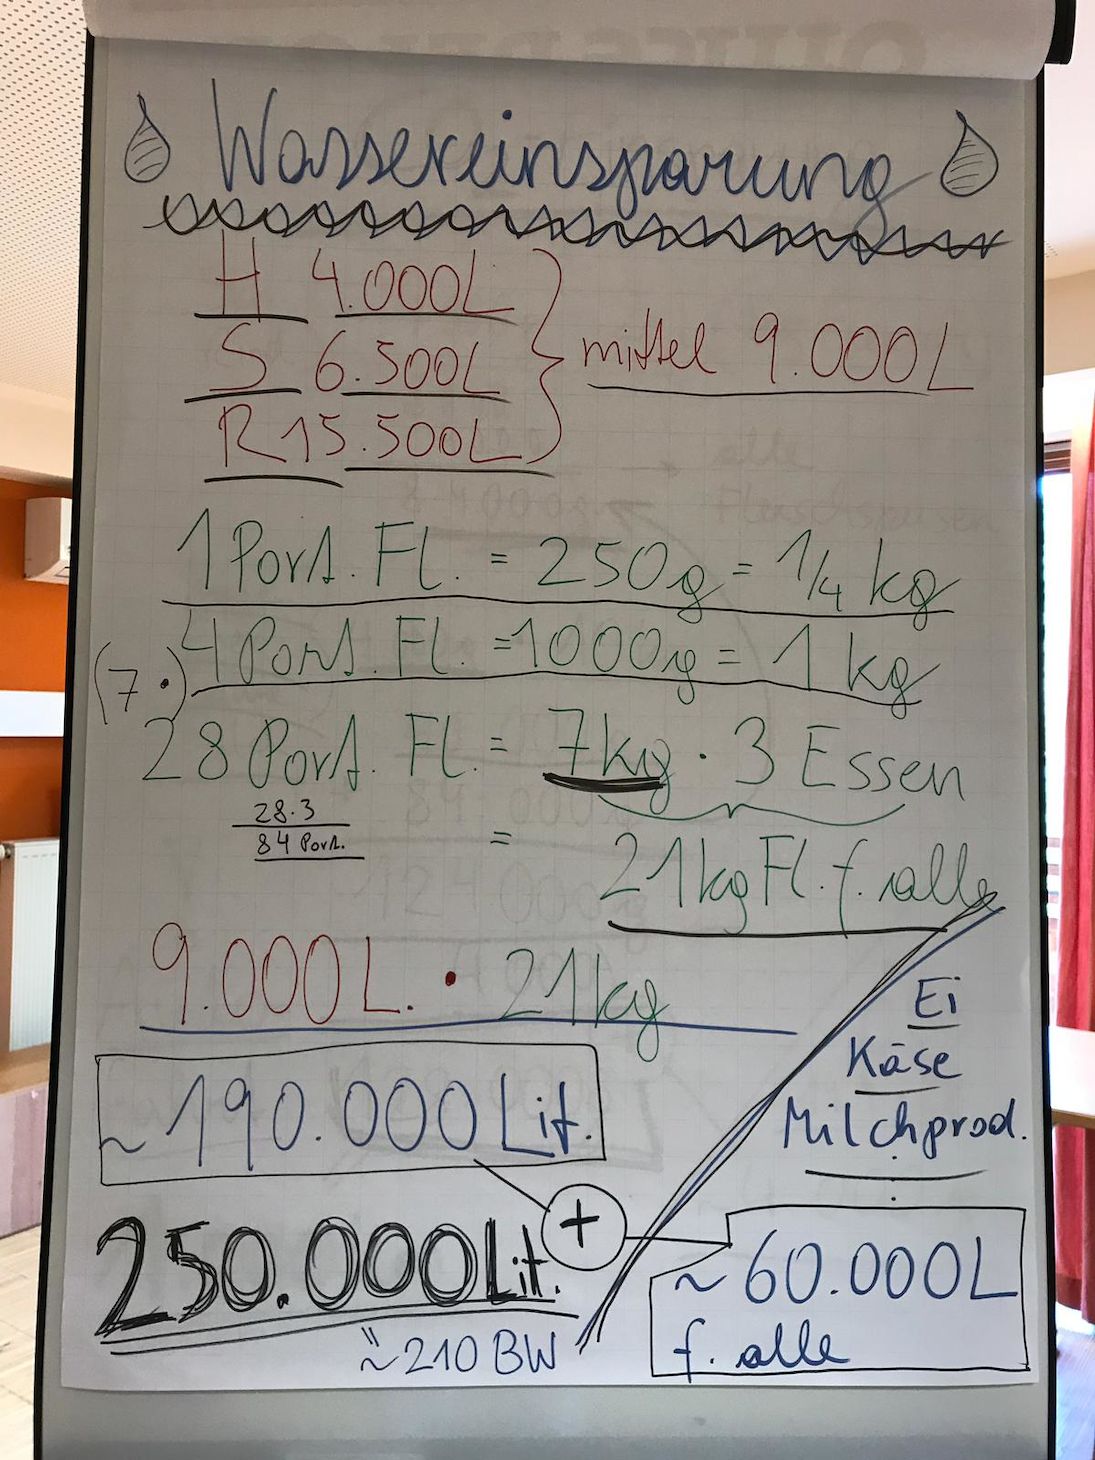 Wassereinsparung
H 4.000L
S 6.500L
R 15.500L
mittel 9.000L
1 Port. Fl. = 250g = 1/4 kg
4 Port. Fl. = 1000g = 1 kg
(7 ·)
28 Port. Fl. = 7kg · 3 Essen
28·3
84 Port.
= 21kg Fl. f. alle
9.000L. · 21kg
~190.000 Lit.
Ei
Käse
Milchprod.
+
~60.000L
f. alle
250.000 Lit.
≈ 210 BW